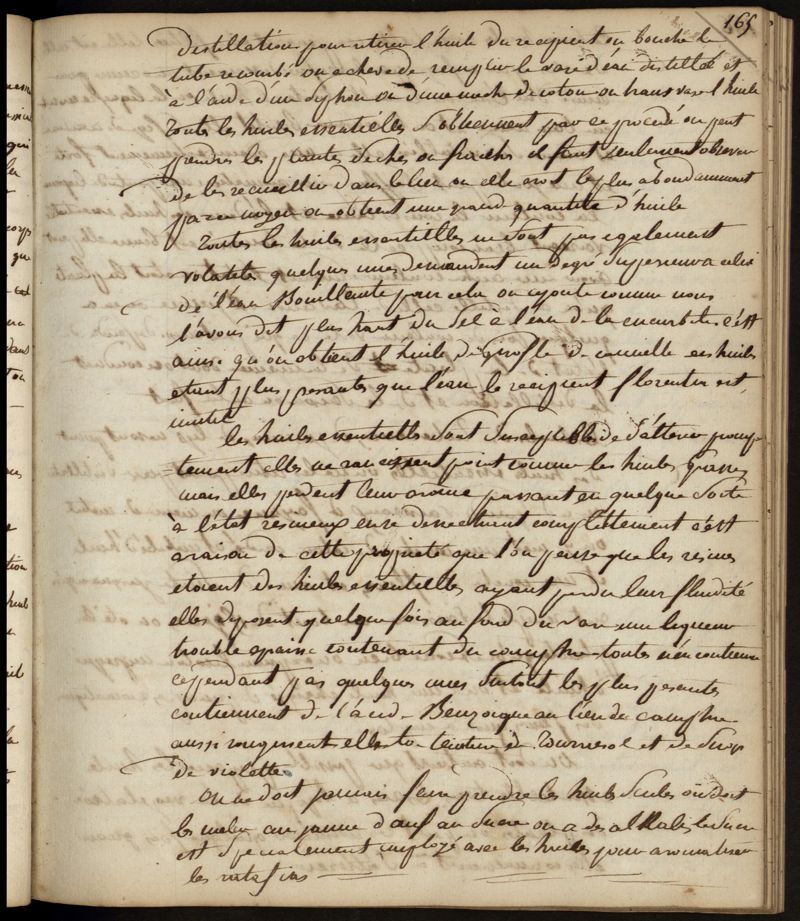 165
distillation pour retirer l'huile du recipient on bouche le
tube recourbé on acheve de remplir le vase d'eau distillée et
à l'aide d'un syphon ou d'une meche de coton on transvase l'huile
toutes les huiles essentielles s'obtiennent par ce procédé on peut
prendre les plantes seches ou fraiches il faut seulement observer
de les recueillir dans le lieu ou elle croit le plus abondamment
par ce moyen on obtient une grand quantité d'huile
Toutes les huiles essentielles ne sont pas egalement
volatiles quelques unes demandent un degré superieur a celui
de l'eau Bouillante pour cela on ajoute comme nous
l'avons dit plus haut du sel à l'eau de la cucurbite c'est
ainsi qu'on obtient l'huile de girofle de cannelle ces huiles
etant plus pesantes que l'eau le recipient florentin est
inutile
les huiles essentielles sont susceptibles de s'alterer promp-
tement elles ne rancissent point comme les huiles grasses
mais elles perdent leur arome passant en quelque sorte
à l'état resineux en se dessechant complettement c'est
a raison de cette proprieté que l'on pense que les resines
etoient des huiles essentielles ayant perdu leur fluidité
elles deposent quelque fois au fond du vase une liqueur
trouble epaisse contenant du camphre toutes n'en contiennent
cependant pas quelques unes surtout les plus pesantes
contiennent de l'acide Benzoique au lieu de camphre
aussi rougissent elles la teinture de Tournesol et de sirop
de violette
On ne doit jamais faire prendre les huiles seules on doit
les meler au jaune d'œuf au sucre ou a des alkalis le sucre
est specialement employé avec les huiles pour aromatiser
les ratafias